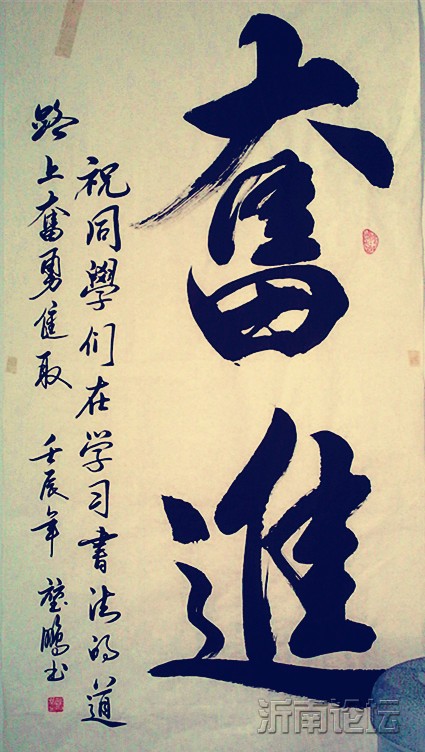 奮進
祝同學们在学习書法的道
路上奮勇進取 壬辰年 鹏书
沂南论坛